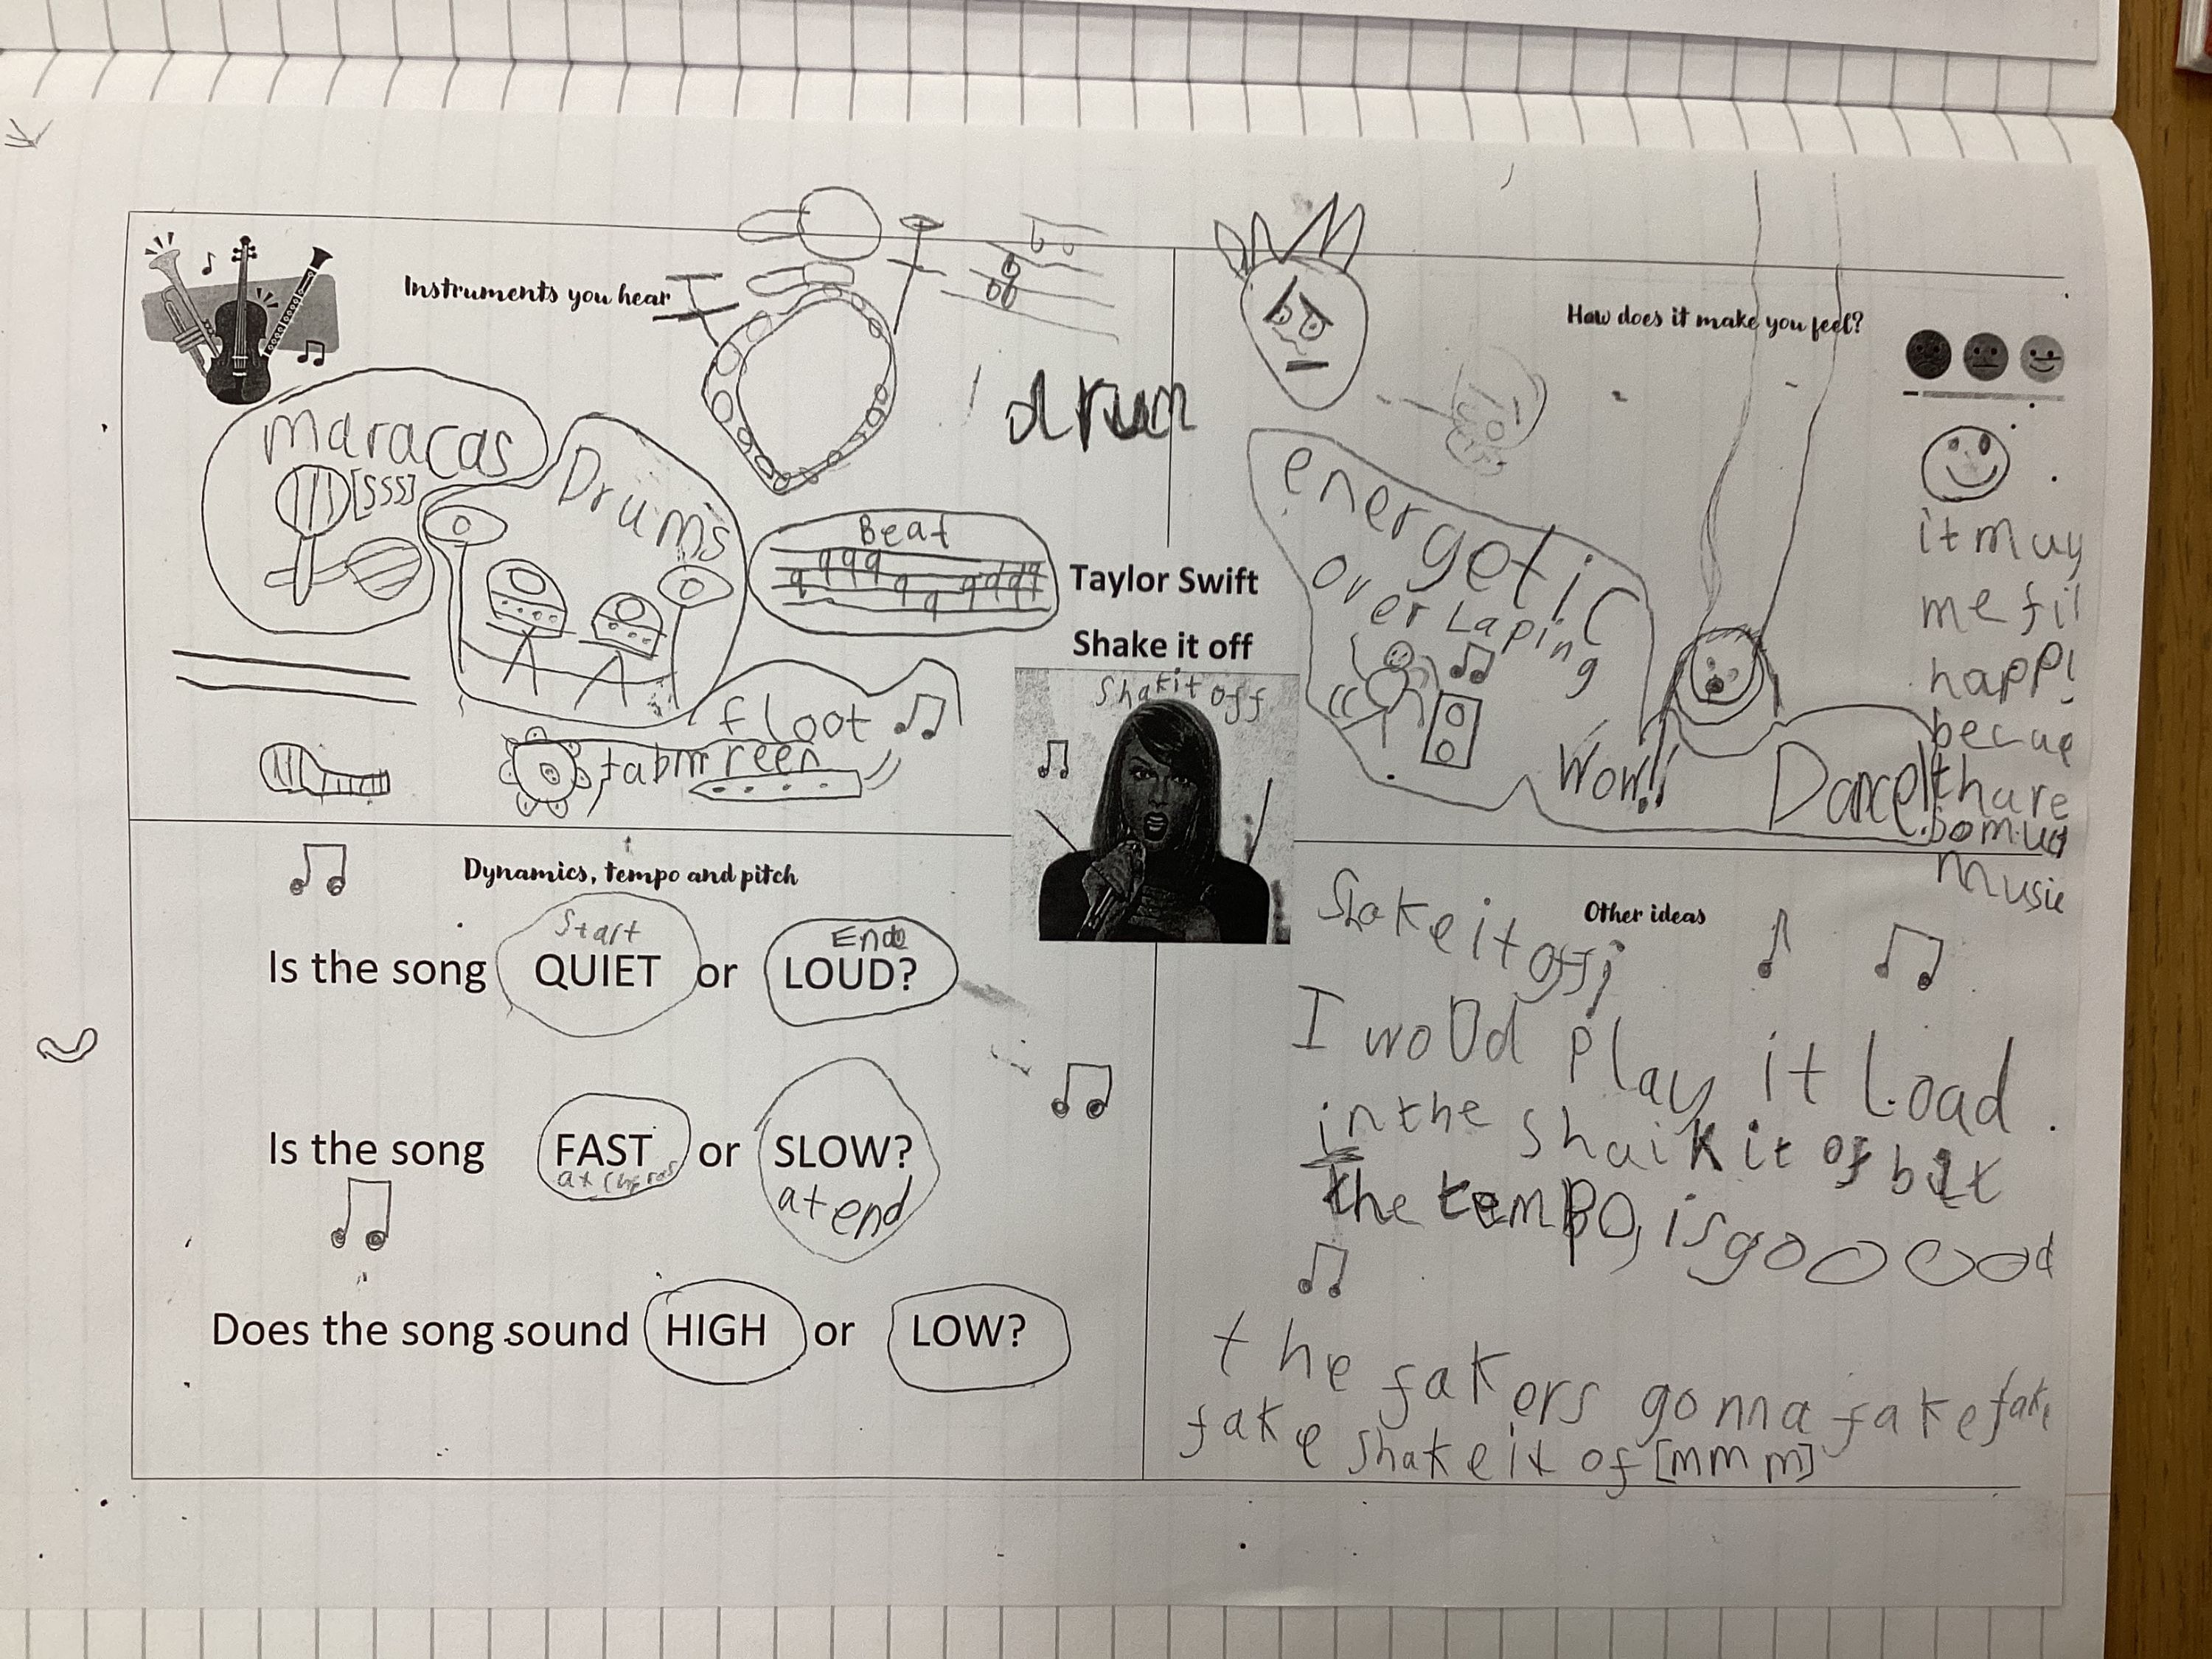 Instruments you hear
drum
maracas
[SSS]
Drums
Beat
floot
tabmreen
Taylor Swift
Shake it off
Shakit off
How does it make you feel?
energetic
overlaping
Wow!!
Dance!!
it muy
me fil
happi
becue
thare
somuch
musie
Dynamics, tempo and pitch
Start
End
Is the song QUIET or LOUD?
Is the song FAST or SLOW?
at end
Does the song sound HIGH or LOW?
Other ideas
Shake it off
I woOd play it load.
in the shaik it of bit
the tempo, is goooood
the fakers gonna fake fake
fake shake it of [mmm]